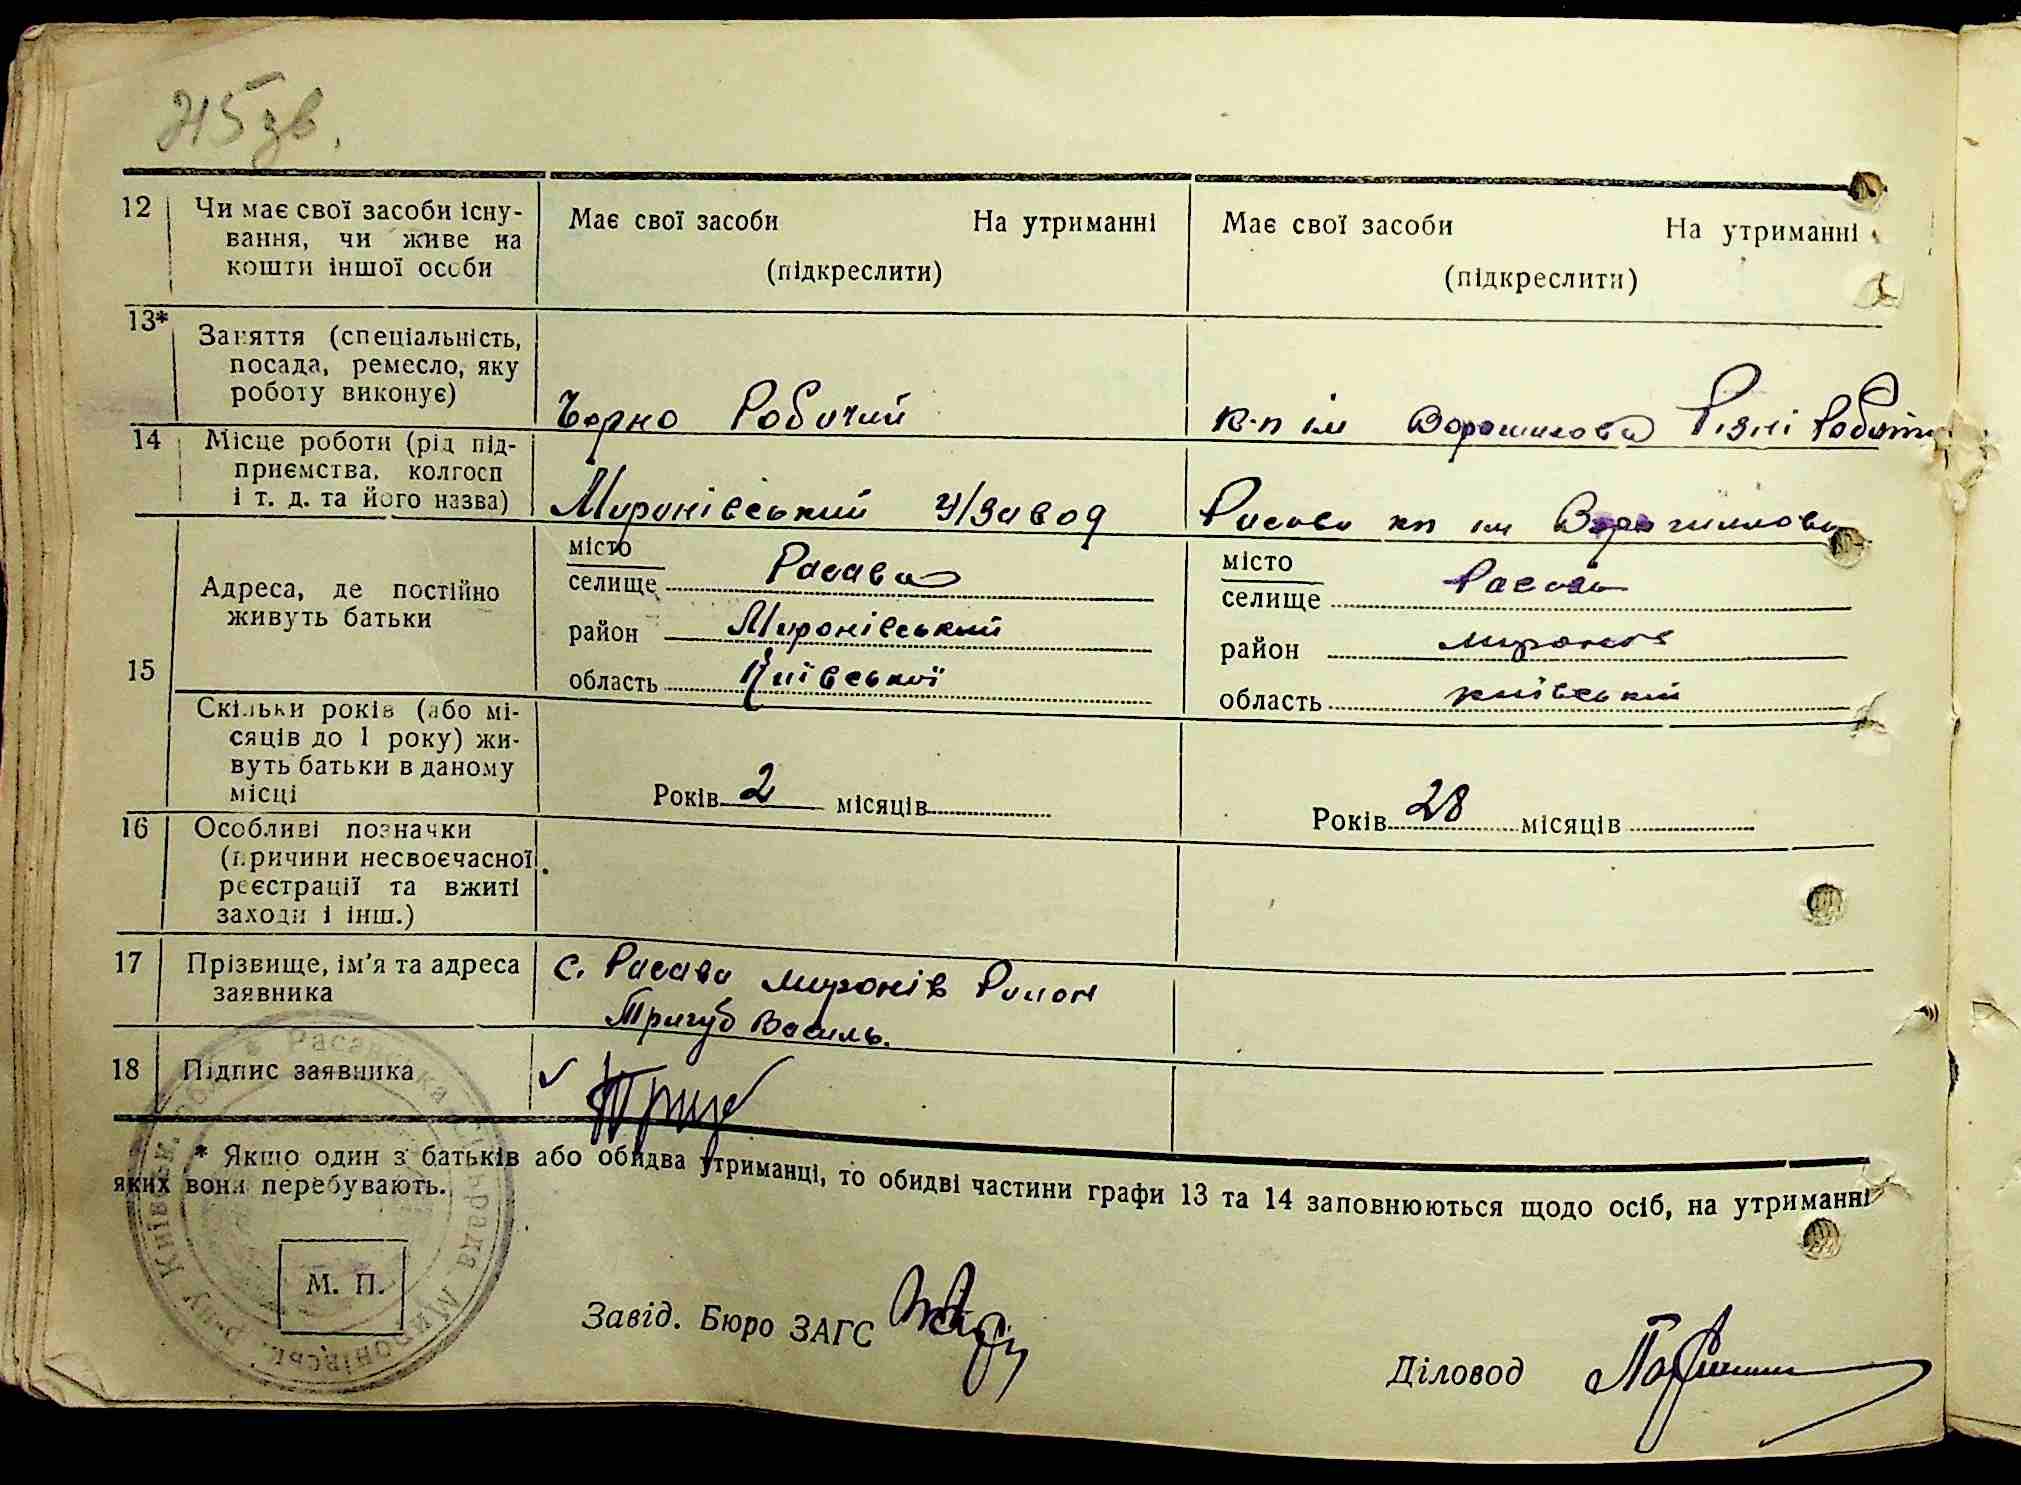 245 зв.
12 Чи має свої засоби існу-
вання, чи живе на
кошти іншої особи
Має свої засоби На утриманні
(підкреслити)
Має свої засоби На утриманні
(підкреслити)
13* Заняття (спеціальність,
посада, ремесло, яку
роботу виконує)
Чорно Робочий
к-п ім Ворошилова Різні Роботи
14 Місце роботи (рід під-
приємства, колгосп
і т. д. та його назва)
Миронівський ц/завод
Расава кп ім Ворошилова
15 Адреса, де постійно
живуть батьки
місто
селище Расава
район Миронівський
область Київської
місто
селище Расава
район миронів
область київський
Скільки років (або мі-
сяців до 1 року) жи-
вуть батьки в даному
місці
Років 2 місяців
Років 28 місяців
16 Особливі позначки
(причини несвоєчасної
реєстрації та вжиті
заходи і інш.)
17 Прізвище, ім'я та адреса
заявника
с. Расава миронів Район
Тригуб Василь.
18 Підпис заявника
Тригуб
* Якщо один з батьків або обидва утриманці, то обидві частини графи 13 та 14 заповнюються щодо осіб, на утриманні
яких вони перебувають.
Расавська сільрада Миронівськ. р-ну Київськ. обл.
М. П.
Завід. Бюро ЗАГС
Діловод